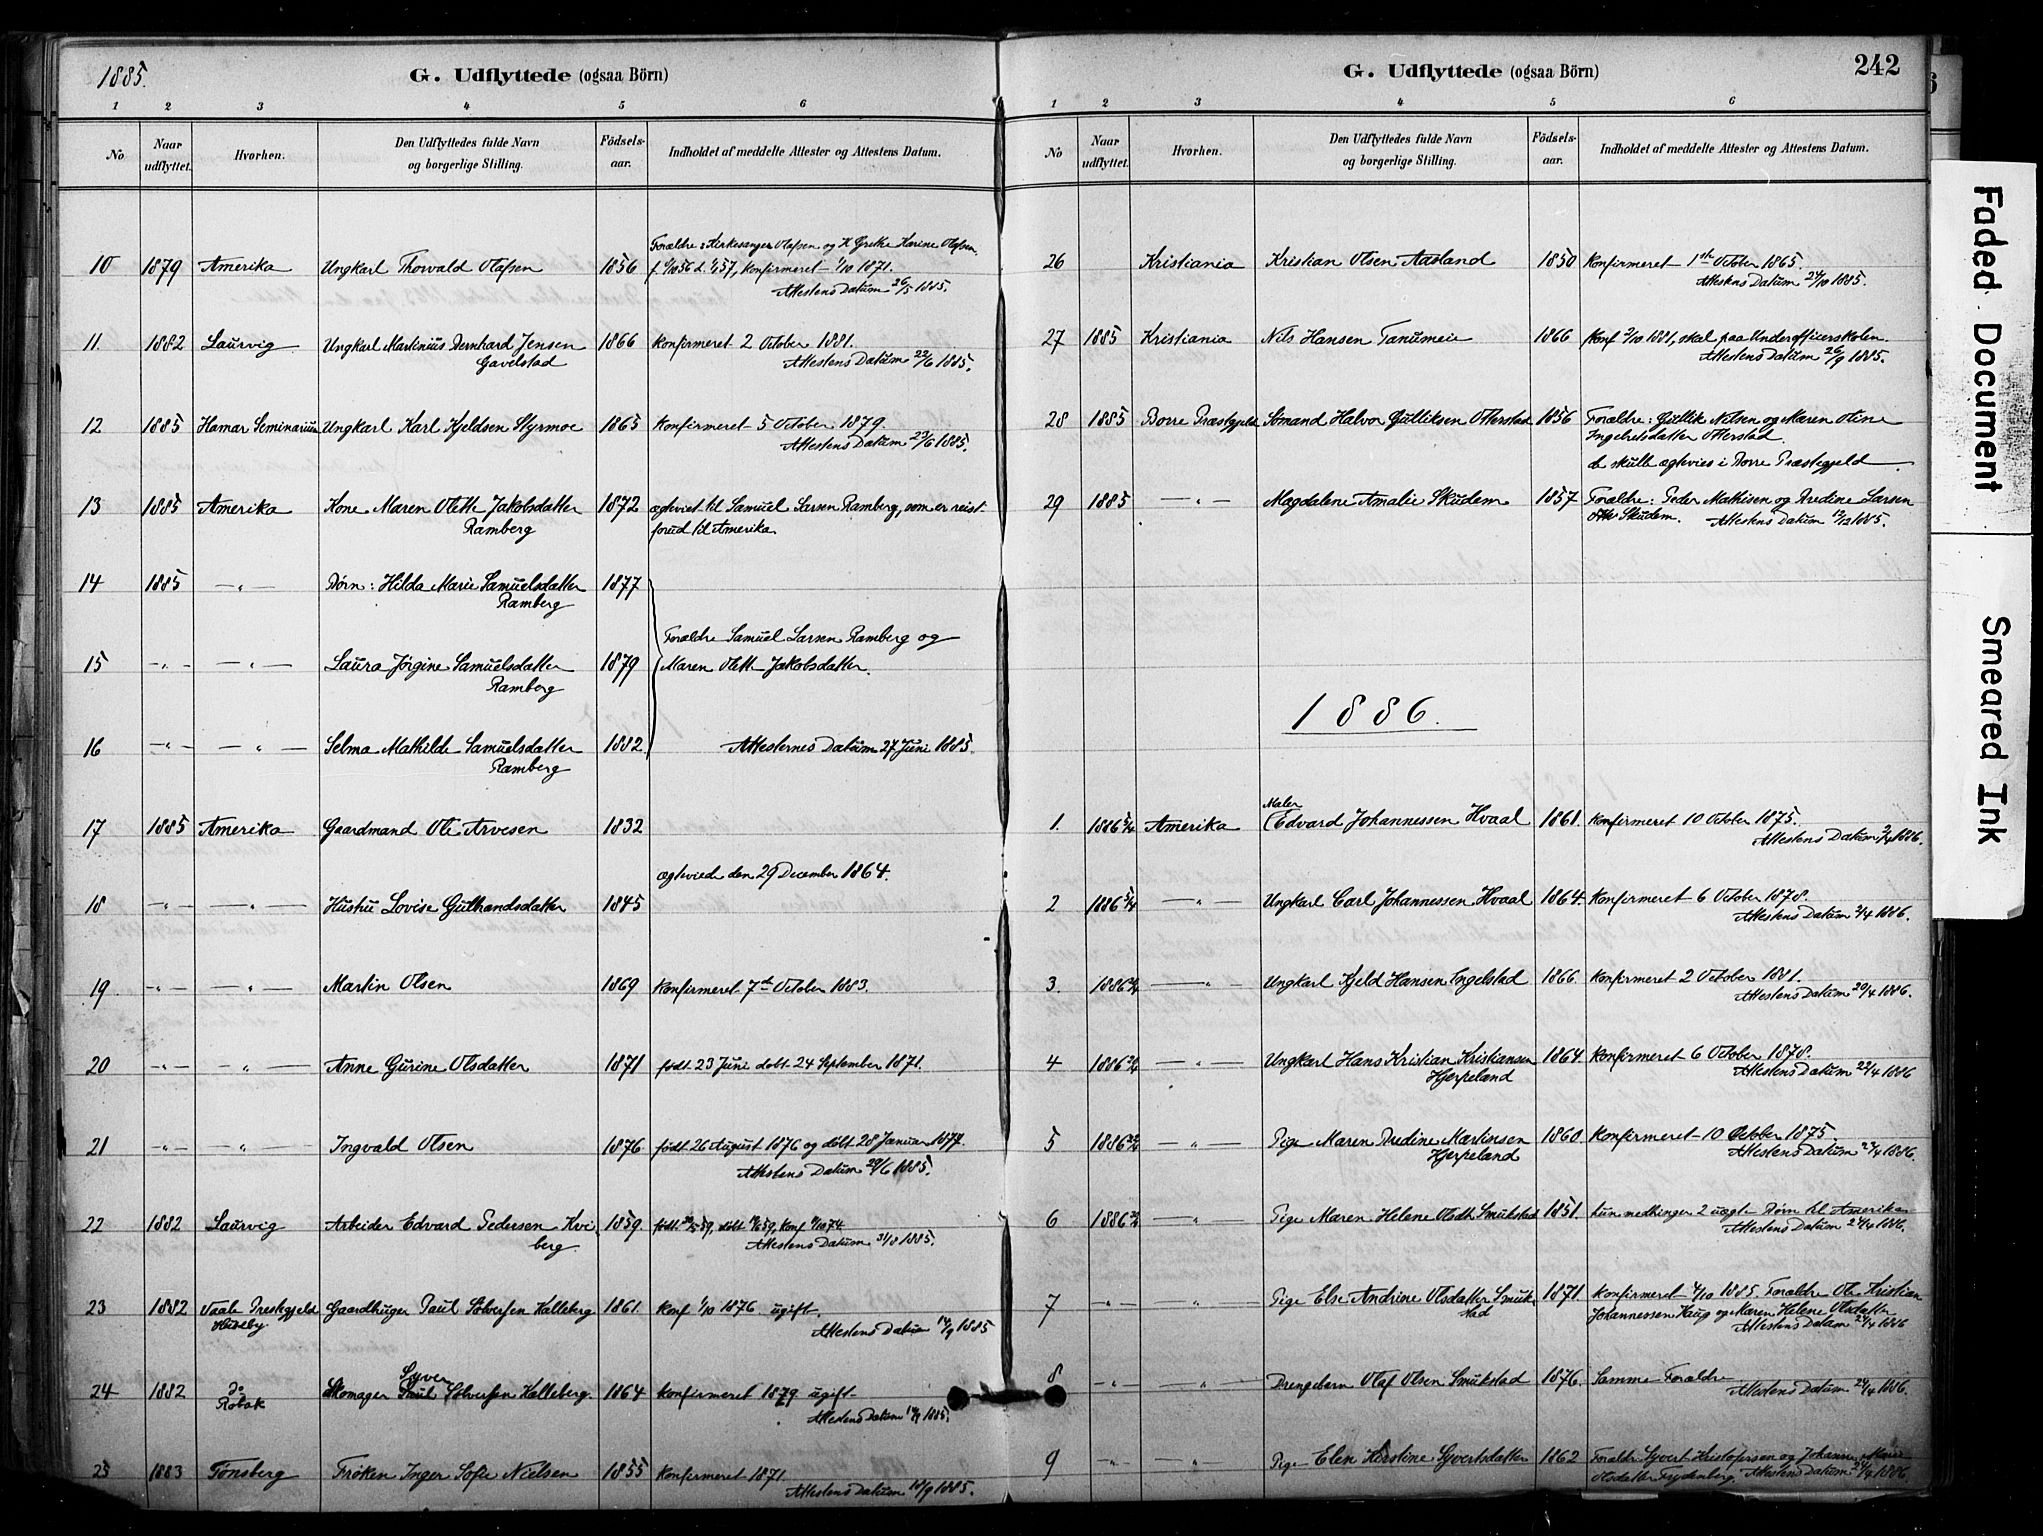 1885.
G. Udflyttede (ogsaa Börn)
1 2 3 4 5 6
No
Naar udflyttet.
Hvorhen.
Den Udflyttedes fulde Navn
og borgerlige Stilling.
Födsels-
aar.
Indholdet af meddelte Attester og Attestens Datum.
Forældre: Kirkesanger Olafsen og H. Grethe Karine Olafsen
10 1879 Amerika Ungkarl Thorvald Olafsen 1856 konfirmeret 1/10 1871.
Attestens Datum 26/5 1885.
11 1882 Laurvig Ungkarl Martinius Bernhard Jensen 1866 konfirmeret 2 October 1881.
Gavelstad Attestens Datum 22/6 1885.
12 1885 Hamar Seminarium Ungkarl Karl Kjeldsen Styrmoe 1865 konfirmeret 5 October 1879.
Attestens Datum 23/6 1885.
13 1885 Amerika Kone Maren Olette Jakobsdatter 1872 ægteviet til Samuel Larsen Ramberg, som er reist
Ramberg forud til Amerika.
14 1885 —"— Börn: Hilda Marie Samuelsdatter 1877
Ramberg
Forældre Samuel Larsen Ramberg og
15 —"— —"— Laura Jörgine Samuelsdatter 1879 Maren Olette Jakobsdatter.
Ramberg
16 —"— —"— Selma Mathilde Samuelsdatter 1882 Attesternes Datum 27 Juni 1885.
Ramberg
17 1885 Amerika Gaardmand Ole Arvesen 1832
ægteviede den 29 December 1864.
18 —"— —"— Hustru Lovise Gulbrandsdatter 1845
19 —"— —"— Martin Olsen 1869 konfirmeret 7de October 1883.
20 —"— —"— Anne Gurine Olsdatter 1871 födt 23 Juni döbt 24 September 1871.
21 —"— —"— Ingvald Olsen 1876 födt 26 August 1876 og döbt 28 Januar 1877.
Attestens Datum 29/6 1885.
22 1882 Laurvig Arbeider Edvard Pedersen Kvi- 1859
berg. Attestens Datum 31/8 1885.
23 1882 Vaale Prestegjeld Gaardbruger Paul Sölversen Kalleberg 1861 konf 1/10 1876. ugift.
Attestens Datum 14/9 1885
Syver
24 1882 do Skomager Paul Sölversen Kalleberg. 1864 konfirmeret 1879 ugift
Robak Attestens Datum 14/9 1885.
25 1883 Tönsberg Fröken Inger Sofie Nielsen 1855 konfirmeret 1871
Attestens Datum 18/9 1885.
G. Udflyttede (ogsaa Börn)
242
1 2 3 4 5 6
No
Naar udflyttet.
Hvorhen.
Den Udflyttedes fulde Navn
og borgerlige Stilling.
Födsels-
aar.
Indholdet af meddelte Attester og Attestens Datum.
26 Kristiania Kristian Olsen Aasland 1850 konfirmeret 1ste October 1865.
Attestens Datum 24/10 1885.
27 1885 Kristiania Nils Hansen Tanumeie 1866 konf 2/10 1881, skal paa Underofficerskolen
Attestens Datum 26/9 1885.
28 1885 Borre Præstegjeld Sömand Halvor Gulliksen Otterstad 1856 Forældre: Gullik Nilsen og Maren Oline
Ingebretsdatter Otterstad.
de skulle ægtevies i Borre Præstegjeld
29 1885 —"— Magdalene Amalie Skudem 1857 Forældre: Peder Mathisen og Bredine Larsen
Skudem. Attestens Datum 12/12 1885.
1886.
Maler
1. 1886 5/4 Amerika Edvard Johannessen Hvaal 1861. konfirmeret 10 October 1875.
Attestens Datum 2/4 1886.
2 1886 5/4 —"— Ungkarl Carl Johannessen Hvaal 1864 konfirmeret 6 October 1878.
Attestens Datum 2/4 1886.
3. 1886 —"— Ungkarl Kjeld Hansen Ingelstad 1866 konfirmeret 2 October 1881.
Attestens Datum 20/4 1886.
4 1886 —"— Ungkarl Hans Kristian Kristiansen 1864 konfirmeret 6 October 1878.
Hjerpeland Attestens Datum 22/4 1886
5 1886 —"— Pige Maren Bredine Martinsen 1860 konfirmeret 10 October 1875.
Hjerpeland Attestens Datum 22/4 1886.
6 1886 —"— Pige Maren Helene Olsdtr Smukstad 1851. hun medbringer 2 uægte Börn til Amerika
Attestens Datum 24/4 1886.
7 —"— Pige Else Andrine Olsdatter Smuk- 1871 konfirmeret 4/10 1885. Forældre Ole Kristian
stad Johannessen Haug og Maren Helene Olsdatter
Attestens Datum 24/4 1886
8 —"— —"— Drengebarn Olaf Olsen Smukstad 1876. Samme Forældre
Attestens Datum 24/4 1886.
9 —"— —"— Pige Elen Kirstine Syvertsdatter 1862 Forældre Syvert Kristofersen og Johanne Marie
Frydenberg. Attestens Datum 24/4 1886
Faded Document
Smeared Ink